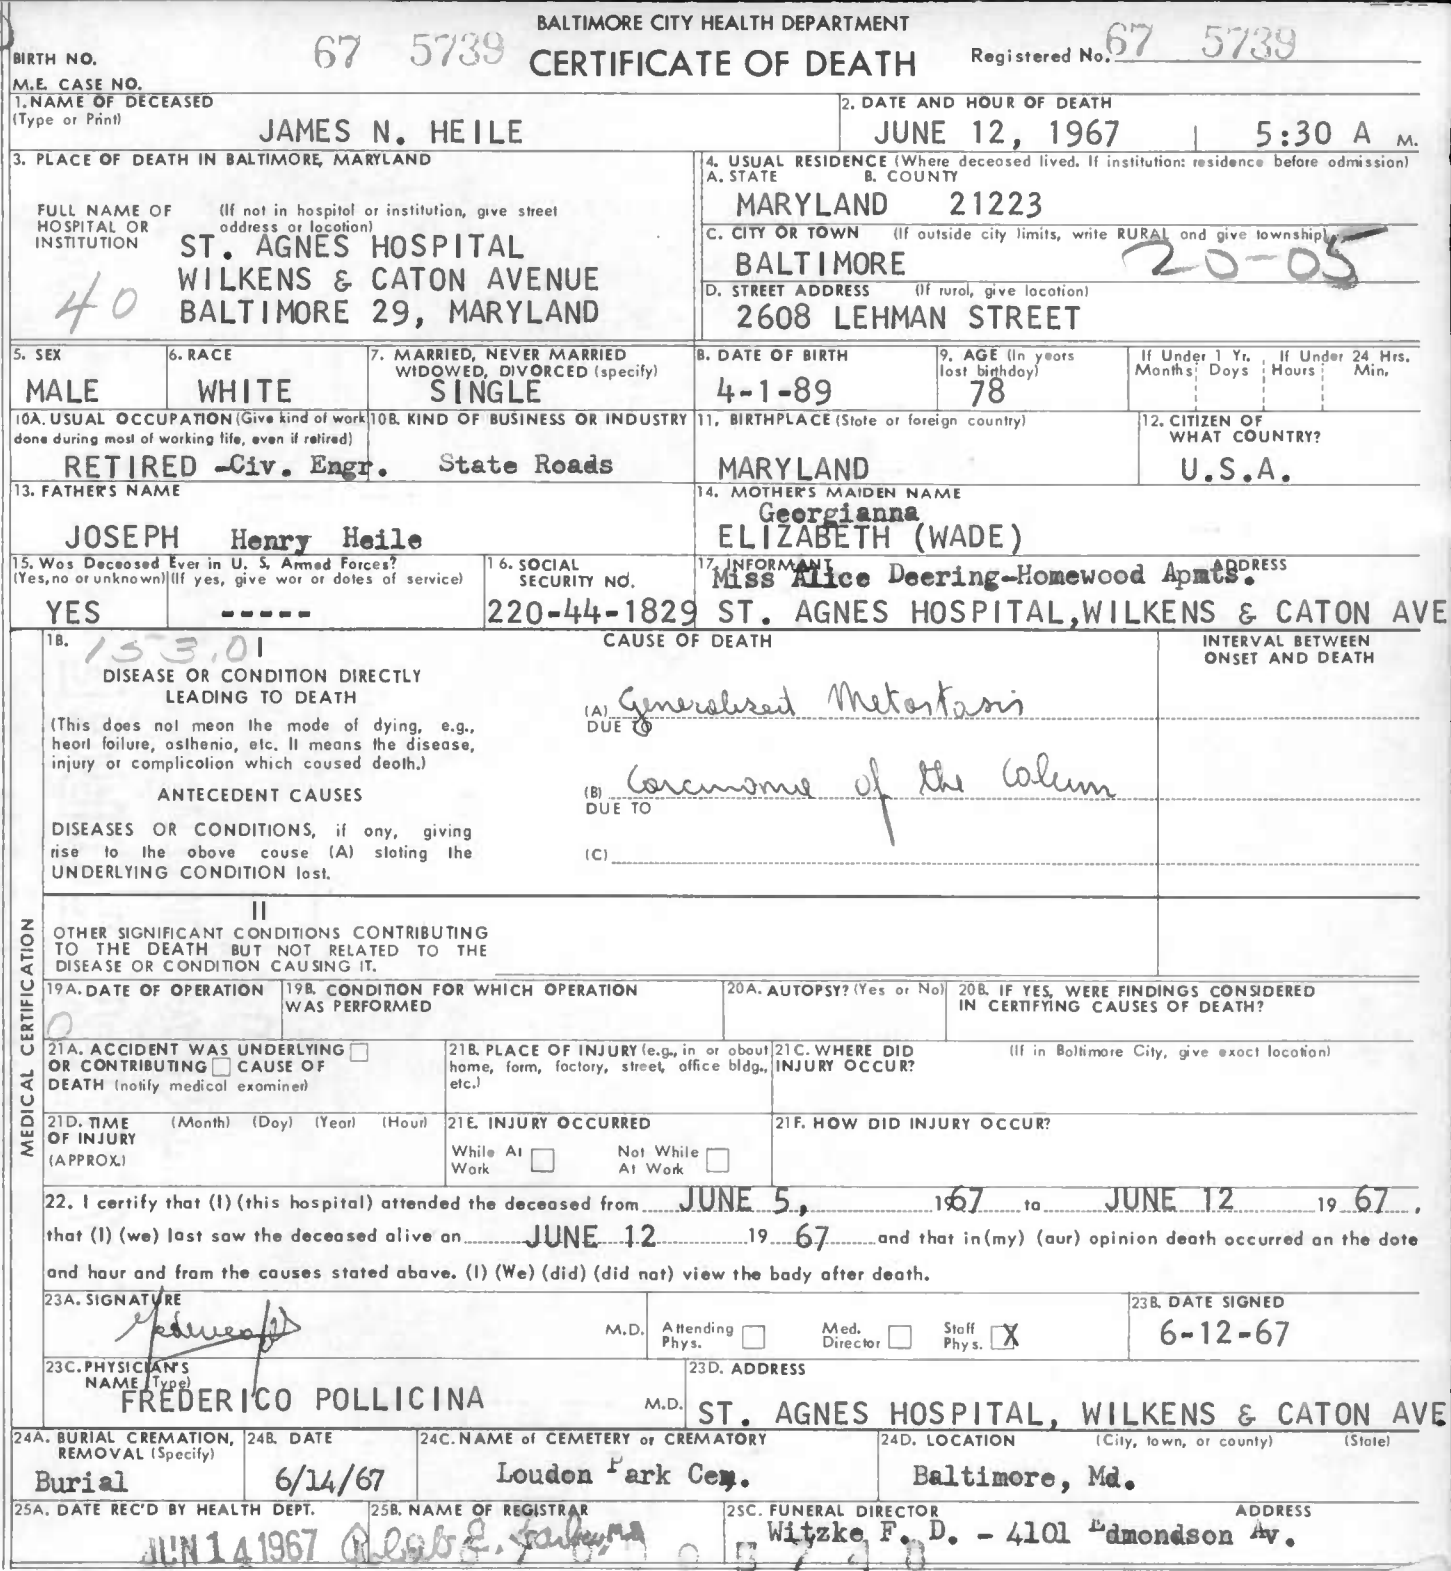 BALTIMORE CITY HEALTH DEPARTMENT
BIRTH NO. 67 5739 CERTIFICATE OF DEATH Registered No. 67 5739
M.E. CASE NO.
1. NAME OF DECEASED
(Type or Print) JAMES N. HEILE
2. DATE AND HOUR OF DEATH
JUNE 12, 1967 5:30 A M.
3. PLACE OF DEATH IN BALTIMORE, MARYLAND
FULL NAME OF HOSPITAL OR INSTITUTION
(If not in hospital or institution, give street address or location)
ST. AGNES HOSPITAL
WILKENS & CATON AVENUE
40 BALTIMORE 29, MARYLAND
4. USUAL RESIDENCE (Where deceased lived. If institution: residence before admission)
A. STATE B. COUNTY
MARYLAND 21223
C. CITY OR TOWN (If outside city limits, write RURAL and give township)
BALTIMORE 20-05
D. STREET ADDRESS (If rural, give location)
2608 LEHMAN STREET
5. SEX
MALE
6. RACE
WHITE
7. MARRIED, NEVER MARRIED
WIDOWED, DIVORCED (specify)
SINGLE
8. DATE OF BIRTH
4-1-89
9. AGE (In years last birthday)
78
If Under 1 Yr. If Under 24 Hrs.
Months Days Hours Min.
10A. USUAL OCCUPATION (Give kind of work
done during most of working life, even if retired)
RETIRED -Civ. Engr.
10B. KIND OF BUSINESS OR INDUSTRY
State Roads
11. BIRTHPLACE (State or foreign country)
MARYLAND
12. CITIZEN OF
WHAT COUNTRY?
U.S.A.
13. FATHER'S NAME
JOSEPH Henry Heile
14. MOTHER'S MAIDEN NAME
Georgianna
ELIZABETH (WADE)
15. Was Deceased Ever in U. S. Armed Forces?
(Yes, no or unknown) (If yes, give war or dates of service)
YES -----
16. SOCIAL
SECURITY NO.
220-44-1829
17. INFORMANT ADDRESS
Miss Alice Deering-Homewood Apmts.
ST. AGNES HOSPITAL, WILKENS & CATON AVE
MEDICAL CERTIFICATION
18. 153.0 I
CAUSE OF DEATH
INTERVAL BETWEEN
ONSET AND DEATH
DISEASE OR CONDITION DIRECTLY
LEADING TO DEATH
(This does not mean the mode of dying, e.g.,
heart failure, asthenia, etc. It means the disease,
injury or complication which caused death.)
(A) Generalized Metastasis
DUE TO
ANTECEDENT CAUSES
(B) Carcinoma of the Colum
DUE TO
DISEASES OR CONDITIONS, if any, giving
rise to the above cause (A) stating the
UNDERLYING CONDITION last.
(C)
II
OTHER SIGNIFICANT CONDITIONS CONTRIBUTING
TO THE DEATH BUT NOT RELATED TO THE
DISEASE OR CONDITION CAUSING IT.
19A. DATE OF OPERATION
0
19B. CONDITION FOR WHICH OPERATION
WAS PERFORMED
20A. AUTOPSY? (Yes or No)
20B. IF YES, WERE FINDINGS CONSIDERED
IN CERTIFYING CAUSES OF DEATH?
21A. ACCIDENT WAS UNDERLYING
OR CONTRIBUTING CAUSE OF
DEATH (notify medical examiner)
21B. PLACE OF INJURY (e.g., in or about
home, farm, factory, street, office bldg.,
etc.)
21C. WHERE DID (If in Baltimore City, give exact location)
INJURY OCCUR?
21D. TIME (Month) (Day) (Year) (Hour)
OF INJURY
(APPROX.)
21E. INJURY OCCURRED
While At Work Not While At Work
21F. HOW DID INJURY OCCUR?
22. I certify that (I) (this hospital) attended the deceased from JUNE 5, 1967 to JUNE 12 19 67,
that (I) (we) last saw the deceased alive on JUNE 12 19 67 and that in (my) (our) opinion death occurred on the date
and hour and from the causes stated above. (I) (We) (did) (did not) view the body after death.
23A. SIGNATURE
M.D. Attending Phys. Med. Director Staff Phys. X
23B. DATE SIGNED
6-12-67
23C. PHYSICIAN'S
NAME (Type)
FREDERICO POLLICINA M.D.
23D. ADDRESS
ST. AGNES HOSPITAL, WILKENS & CATON AVE
24A. BURIAL CREMATION,
REMOVAL (Specify)
Burial
24B. DATE
6/14/67
24C. NAME of CEMETERY or CREMATORY
Loudon Park Cem.
24D. LOCATION (City, town, or county) (State)
Baltimore, Md.
25A. DATE REC'D BY HEALTH DEPT.
JUN 14 1967
25B. NAME OF REGISTRAR
25C. FUNERAL DIRECTOR ADDRESS
Witzke F. D. - 4101 Edmondson Av.